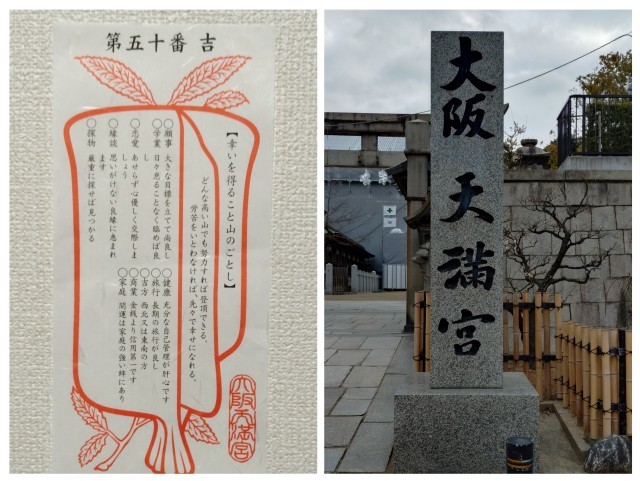 第五十番 吉
【幸いを得ること山のごとし】
どんな高い山でも努力すれば登頂できる、
労苦をいとわなければ、先々で幸せになれる。
○願事 大きな目標を立てて尚良し
○学業 日々怠ることなく臨めば良
し
○恋愛 あせらず心優しく交際しま
しょう
○縁談 思いがけない良縁に恵まれ
ます
○探物 厳重に探せば見つかる
○健康 充分な自己管理が肝心です
○旅行 長期の旅行が良し
○吉方 西北又は東南の方
○商業 金銭より信用第一です
○家庭 開運は家庭の強い絆にあり
大阪天満宮
大阪天満宮